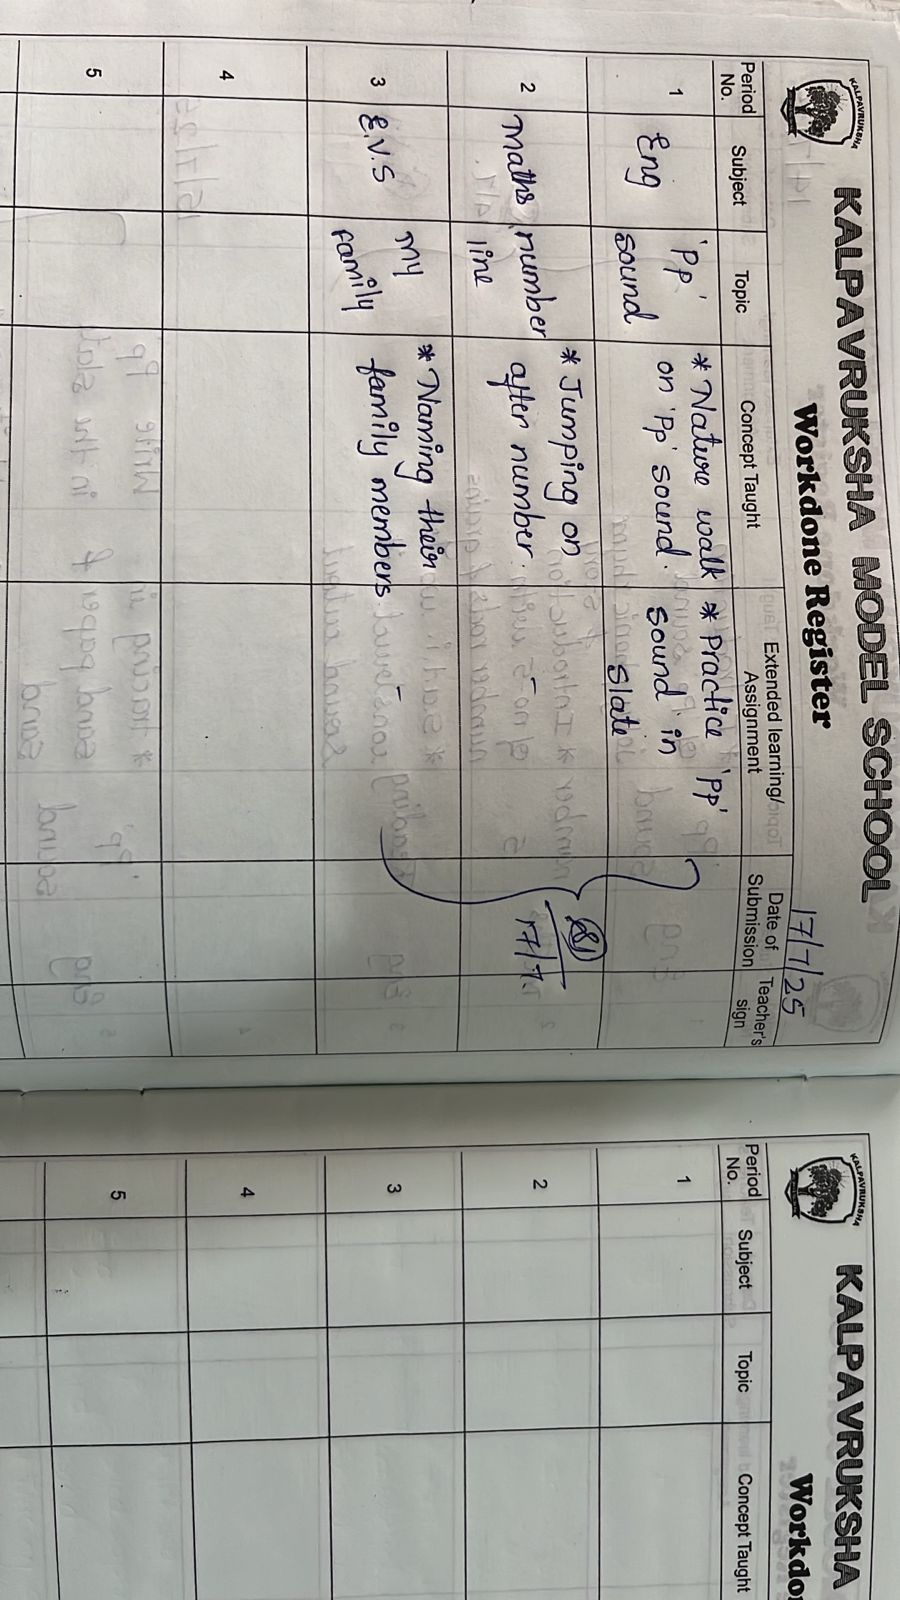 KALPAVRUKSHA
KALPAVRUKSHA MODEL SCHOOL
Workdone Register
17/7/25
Period No.
Subject
Topic
Concept Taught
Extended learning/ Assignment
Date of Submission
Teacher's sign
1
Eng
'Pp'
sound
* Nature walk
on 'Pp' sound.
* Practice 'Pp'
sound in
slate
2
Maths
number
line
* Jumping on
after number.
17/7
3
E.V.S
My
family
* Naming their
family members.
4
5
KALPAVRUKSHA
KALPAVRUKSHA
Period No.
Subject
Topic
Concept Taught
1
2
3
4
5